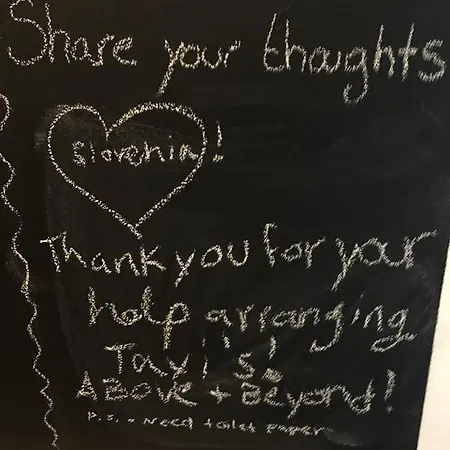 Share your thoughts
Slovenia!
Thank you for your
help arranging
Taxi's!
Above + Beyond!
P.S. - Need toilet paper